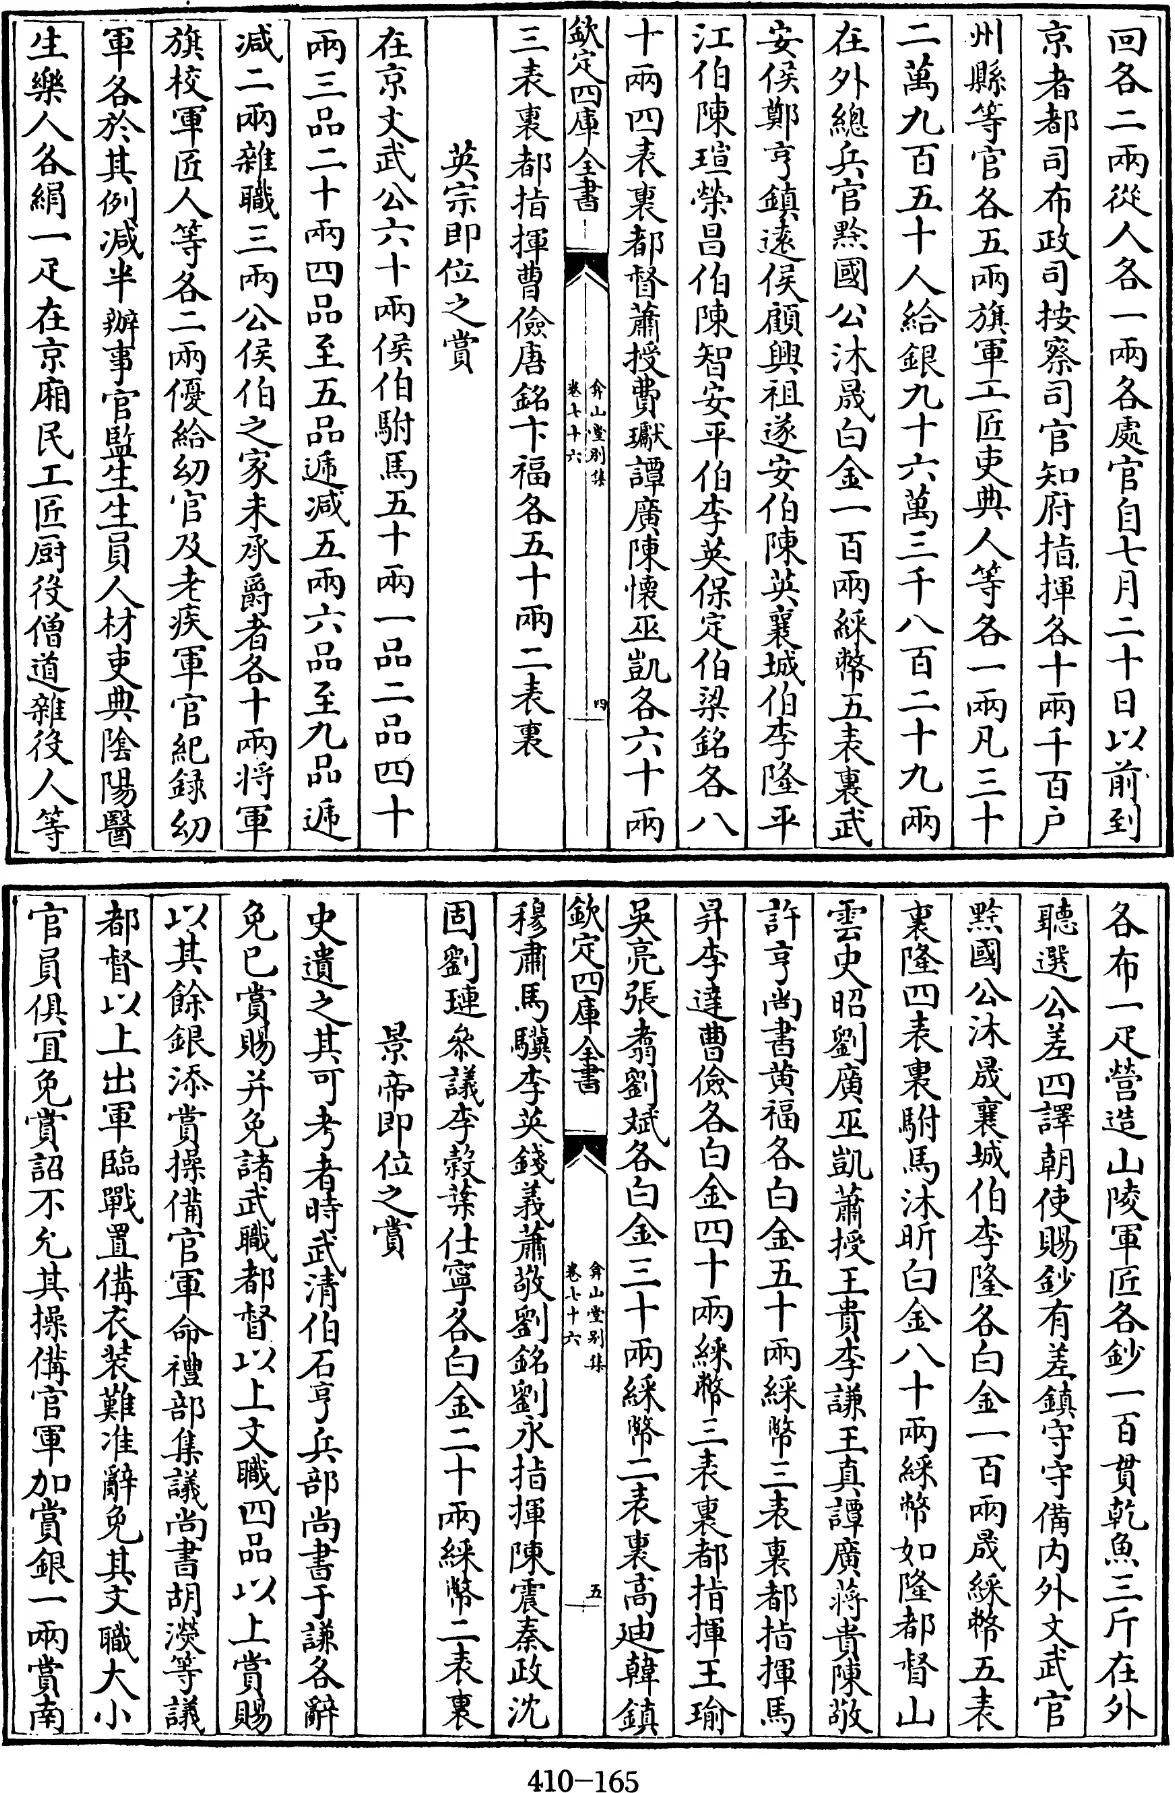 回各二兩從人各一兩各處官自七月二十日以前到
京者都司布政司按察司官知府指揮各十兩千百户
州縣等官各五兩旗軍工匠吏典人等各一兩凡三十
二萬九百五十人給銀九十六萬三千八百二十九兩
在外總兵官黔國公沐晟白金一百兩綵幣五表裏武
安侯鄭亨鎮遠侯顧興祖遂安伯陳英襄城伯李隆平
江伯陳瑄榮昌伯陳智安平伯李英保定伯梁銘各八
十兩四表裏都督蕭授費瓛譚廣陳懷巫凱各六十兩
欽定四庫全書
弇山堂别集
卷七十六
四
三表裏都指揮曹儉唐銘卞福各五十兩二表裏
英宗即位之賞
在京文武公六十兩侯伯駙馬五十兩一品二品四十
兩三品二十兩四品至五品遞減五兩六品至九品遞
減二兩雜職三兩公侯伯之家未承爵者各十兩將軍
旗校軍匠人等各二兩優給幼官及老疾軍官紀録幼
軍各於其例減半辦事官監生生員人材吏典陰陽醫
生樂人各絹一疋在京廂民工匠厨役僧道雜役人等
各布一疋營造山陵軍匠各鈔一百貫乾魚三斤在外
聽選公差四譯朝使賜鈔有差鎮守守備内外文武官
黔國公沐晟襄城伯李隆各白金一百兩晟綵幣五表
裏隆四表裏駙馬沐昕白金八十兩綵幣如隆都督山
雲史昭劉廣巫凱蕭授王貴李謙王真譚廣蔣貴陳敬
許亨尚書黄福各白金五十兩綵幣三表裏都指揮馬
昇李達曹儉各白金四十兩綵幣三表裏都指揮王瑜
吳亮張翥劉斌各白金三十兩綵幣二表裏高迪韓鎮
欽定四庫全書
弇山堂别集
卷七十六
五
穆肅馬驥李英錢義蕭敬劉銘劉永指揮陳震秦政沈
固劉璉叅議李穀葉仕寧各白金二十兩綵幣二表裏
景帝即位之賞
史遺之其可考者時武清伯石亨兵部尚書于謙各辭
免已賞賜并免諸武職都督以上文職四品以上賞賜
以其餘銀添賞操備官軍命禮部集議尚書胡濙等議
都督以上出軍臨戰置備衣装難准辭免其文職大小
官員俱宜免賞詔不允其操備官軍加賞銀一兩賞南
410-165